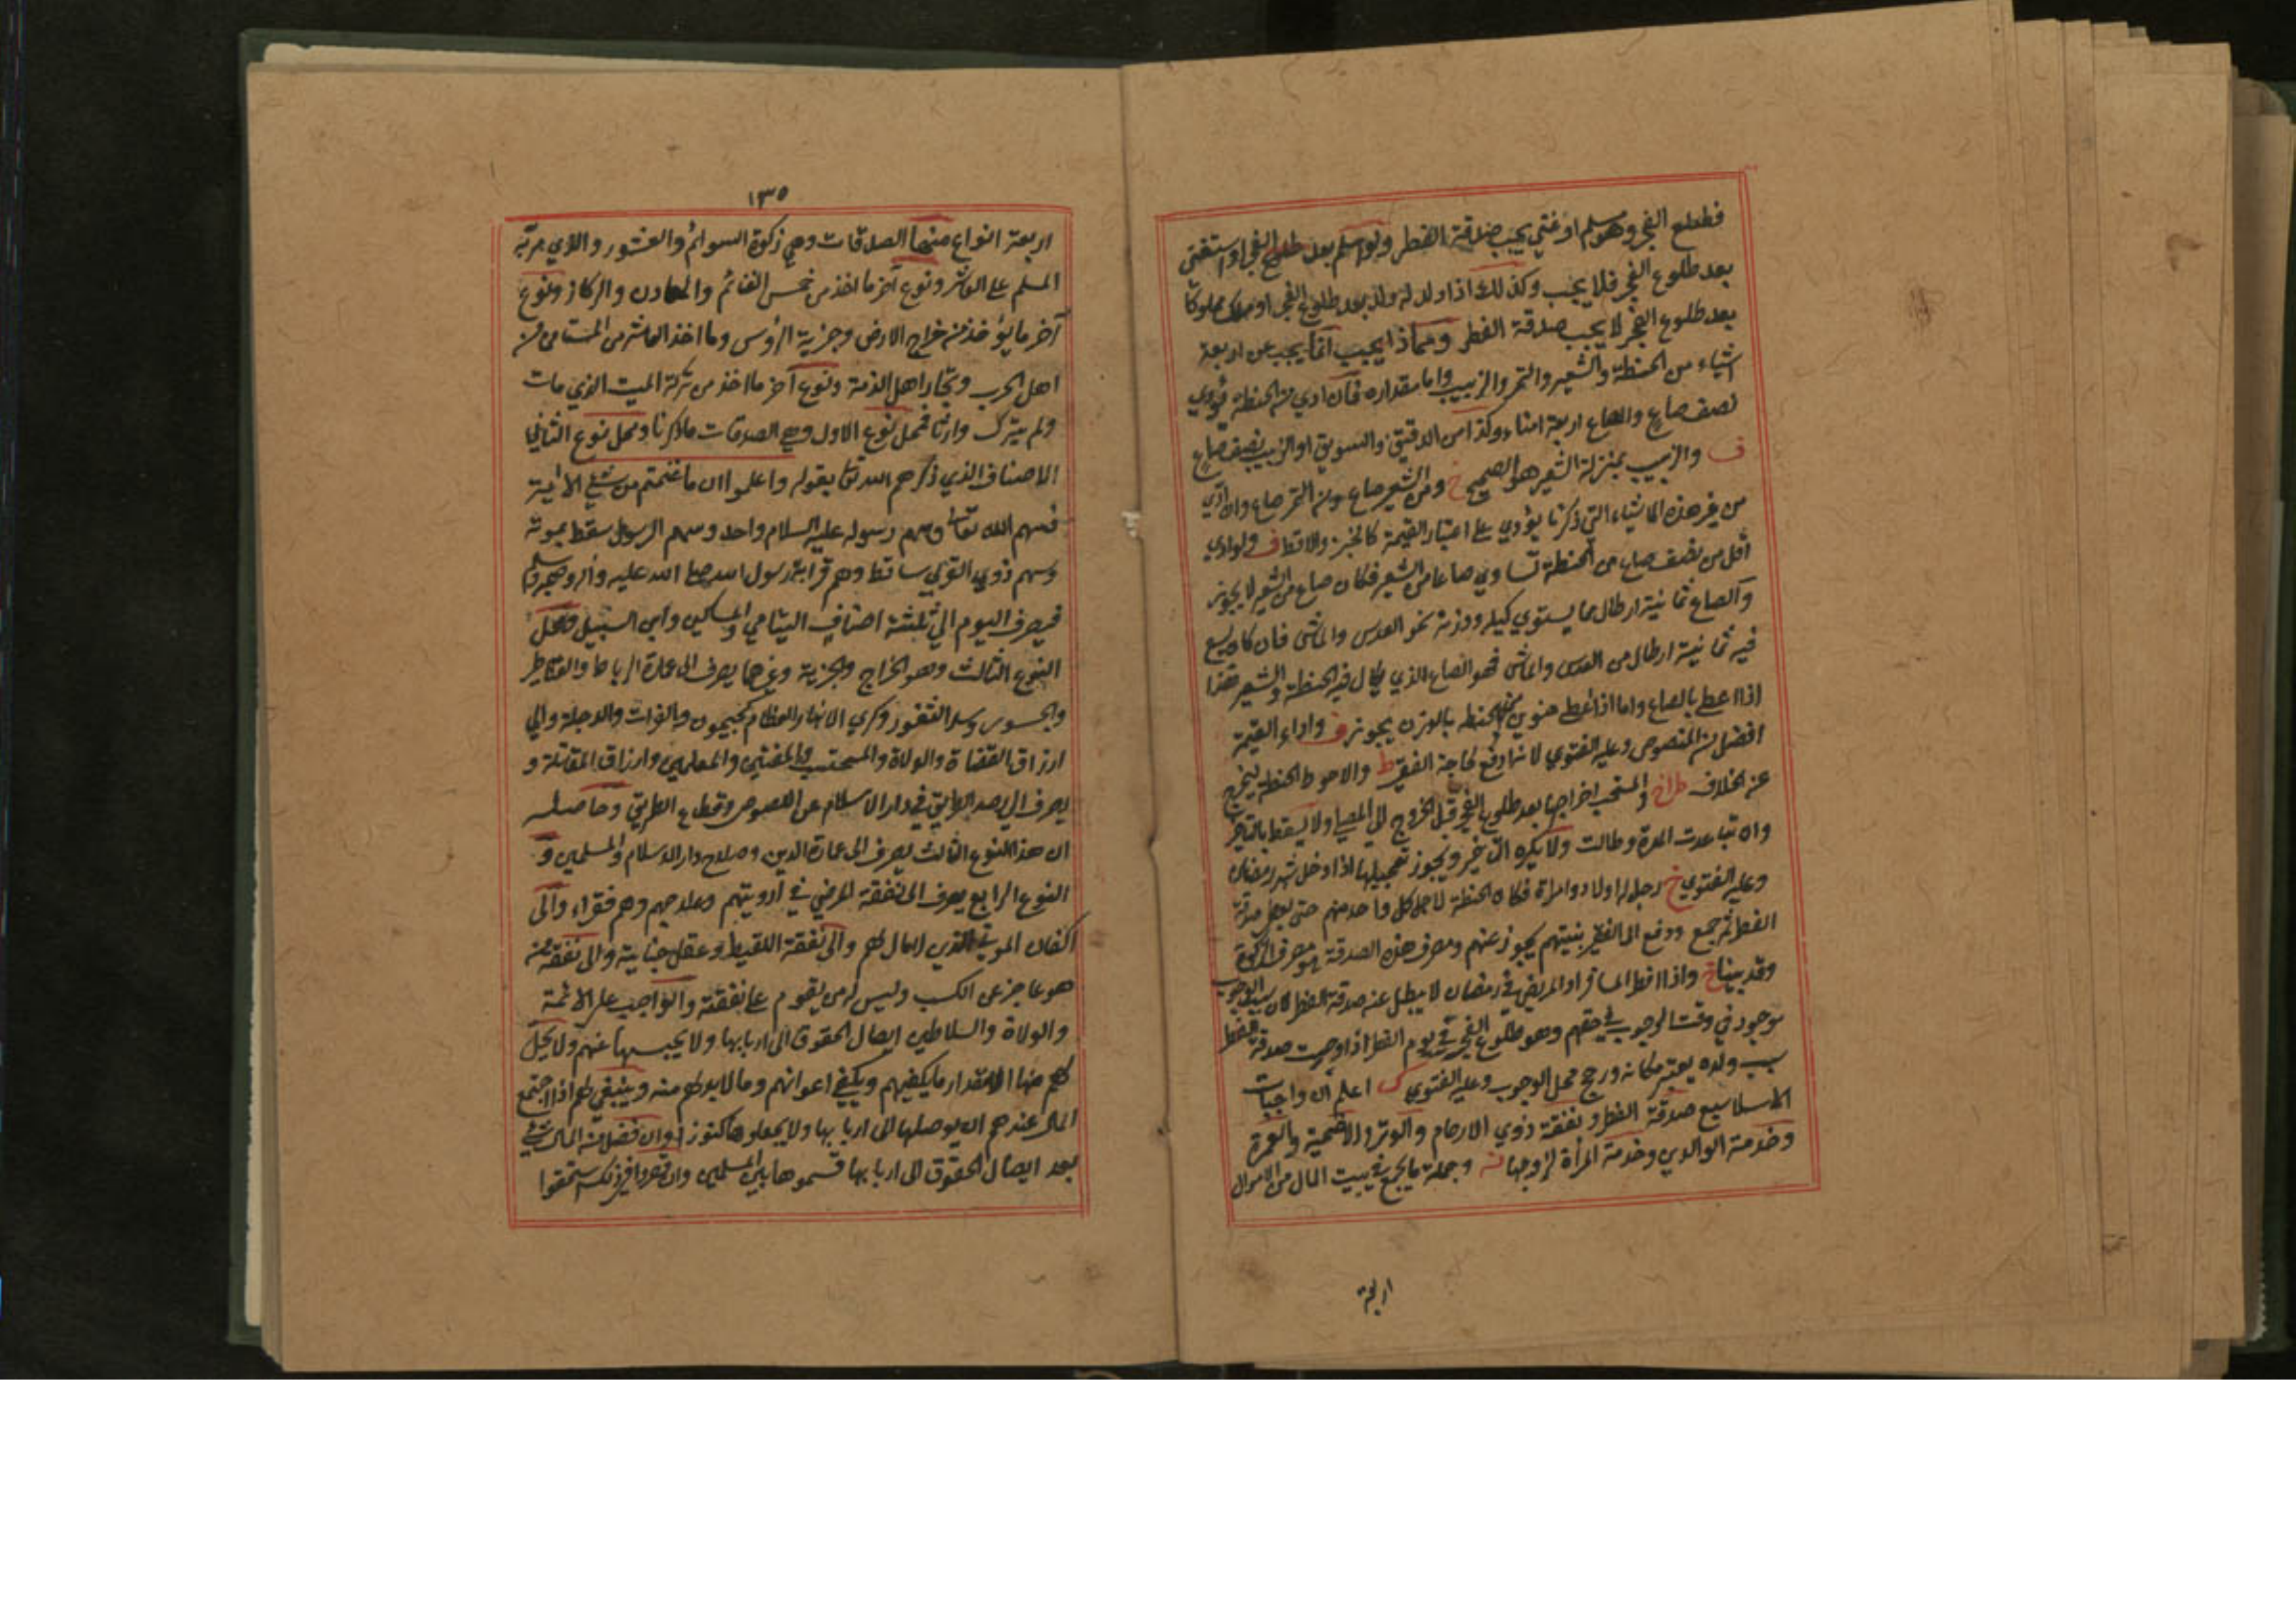 فطلع الفجر وهو مسلم او غني يجب صدقة الفطر ولو اسلم بعد طلوع الفجر او استغنى
بعد طلوع الفجر فلا يجب وكذلك اذا ولد له ولد بعد طلوع الفجر او ملك مملوكا
بعد طلوع الفجر لا يجب صدقة الفطر ومماذا يجب انما يجب عن اربعة
اشياء من الحنطة والشعير والتمر والزبيب واما مقداره فان ادي من الحنطة يؤدي
نصف صاع والصاع اربعة امناء وكذا من الدقيق والسويق او الزبيب نصف صاع
ف والزبيب بمنزلة الشعير هو الصحيح خ ومن الشعير صاع ومن التمر صاع وان ادي
من غير هذه الاشياء التي ذكرنا يؤدي على اعتبار القيمة كالخبز والاقط ف ولو ادي
اقل من نصف صاع من الحنطة تساوي صاعا من الشعير فكان صاع من الشعير لا يجوز
والصاع ثمانية ارطال مما يستوي كيله ووزنه نحو العدس والماش فان كان يسع
فيه ثمانية ارطال من العدس والماش فهو الصاع الذي يكال فيه الحنطة والشعير هذا
اذا اعطى بالصاع واما اذا اعطى منوين من الحنطه بالوزن يجوز ف واداء القيمة
افضل من المنصوص وعليه الفتوي لانها ادفع لحاجة الفقير ط والاحوط الحنطة ليخرج
عن الخلاف والمستحب اخراجها بعد طلوع الفجر قبل الخروج الى المصلى ولا يسقط بالتاخير
وان تباعدت المدة وطالت ولا يكره التاخير ويجوز تعجيلها اذا دخل شهر رمضان
وعليه الفتوي خ رجل له اولاد وامراة فكال الحنطة لاجل كل واحد منهم حتى يعطى صدقة
الفطر ثم جمع ودفع الى الفقير بنيتهم يجوز عنهم ومصرف هذه الصدقة هو مصرف الزكوة
وقد بينا خ واذا افطر المسافر او المريض في رمضان لا يبطل عنه صدقة الفطر لان سبب الوجوب
موجود في وقت الوجوب في حقهم وهو طلوع الفجر في يوم الفطر اذا وجبت صدقة الفطر
بسبب ولده يعتبر مكانه ورجح محل الوجوب وعليه الفتوي اعلم ان واجبات
الاسلام سبع صدقة الفطر ونفقة ذوي الارحام والوتر والاضحية والعمرة
وخدمة الوالدين وخدمة المرأة لزوجها وجملة ما يجمع في بيت المال من الاموال
اربعة
١٣٥
اربعة انواع منها الصدقات وهي زكوة السوائم والعشور والذي مر به
المسلم على العاشر ونوع آخر ما اخذ من خمس الغنائم والمعادن والركاز ونوع
آخر ما يؤخذ من خراج الارض وجزية الرؤس وما اخذ العاشر من المستامن من
اهل الحرب وتجار اهل الذمة ونوع آخر ما اخذ من تركة الميت الذي مات
ولم يترك وارثا فمحل نوع الاول وهي الصدقات ما ذكرنا ومحل نوع الثاني
الاصناف الذي ذكرهم الله تعا بقوله واعلموا ان ما غنمتم من شئ الاية
فسهم الله تعا وسهم رسوله عليه السلام واحد وسهم الرسول سقط بموته
وسهم ذوي القربي ساقط وهم قرابة رسول الله صلى الله عليه وآله وصحبه وسلم
فيصرف اليوم الى ثلثة اصناف اليتامي والمساكين وابن السبيل ومحل
النوع الثالث وهو الخراج والجزية وغيرهما يصرف الى عمارة الرباط والقناطر
والجسور وسد الثغور وكري الانهار العظام كجيحون والفرات والدجلة والي
ارزاق القضاة والولاة والمحتسب والمفتين والمعلمين وارزاق المقاتلة و
يصرف الى رصد الطريق في دار الاسلام عن اللصوص وقطاع الطريق وحاصله
ان هذا النوع الثالث يصرف الى عمارة الدين وصلاح دار الاسلام والمسلمين و
النوع الرابع يصرف الى نفقة المرضي في ادويتهم وعلاجهم وهم فقراء والى
اكفان الموتي الذين لا مال لهم والى نفقة اللقيط وعقل جنايته والى نفقة من
هو عاجز عن الكسب وليس له من يقوم على نفقته والواجب على الائمة
والولاة والسلاطين ايصال الحقوق الى اربابها ولا يحبسها عنهم ولا يحل
لهم منها الا مقدار ما يكفيهم ويكفي اعوانهم وما لا بد لهم منه وينبغي لهم اذا اجتمع
المال عندهم ان يوصلها الى اربابها ولا يجعلوها كنوزا وان فضل من المال شئ
بعد ايصال الحقوق الى اربابها قسموها بين المسلمين وان قصروا في ذلك استحقوا